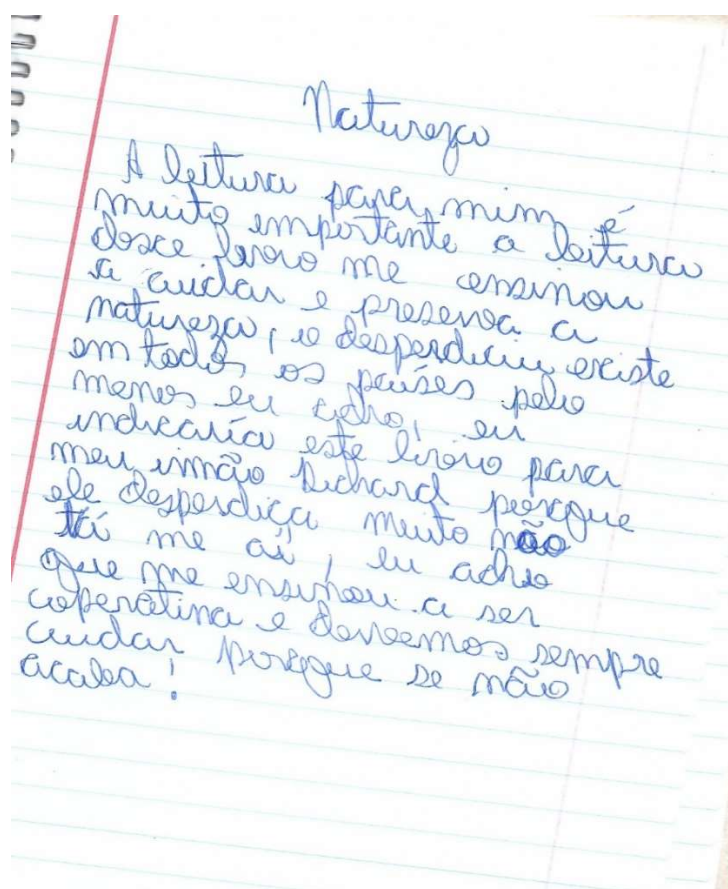 Natureza
A leitura para mim é
muito importante a leitura
desce livro me ensinou
a cuidar e presenva a
natureza, o desperdiciu existe
em todos os países pelo
menos eu acho, eu
indicaria este livro para
meu irmão Richard porque
ele desperdiça muito não
tá me aí, eu acho
que me ensinou a ser
coperatina e devemos sempre
cuidar porque se não
acaba!